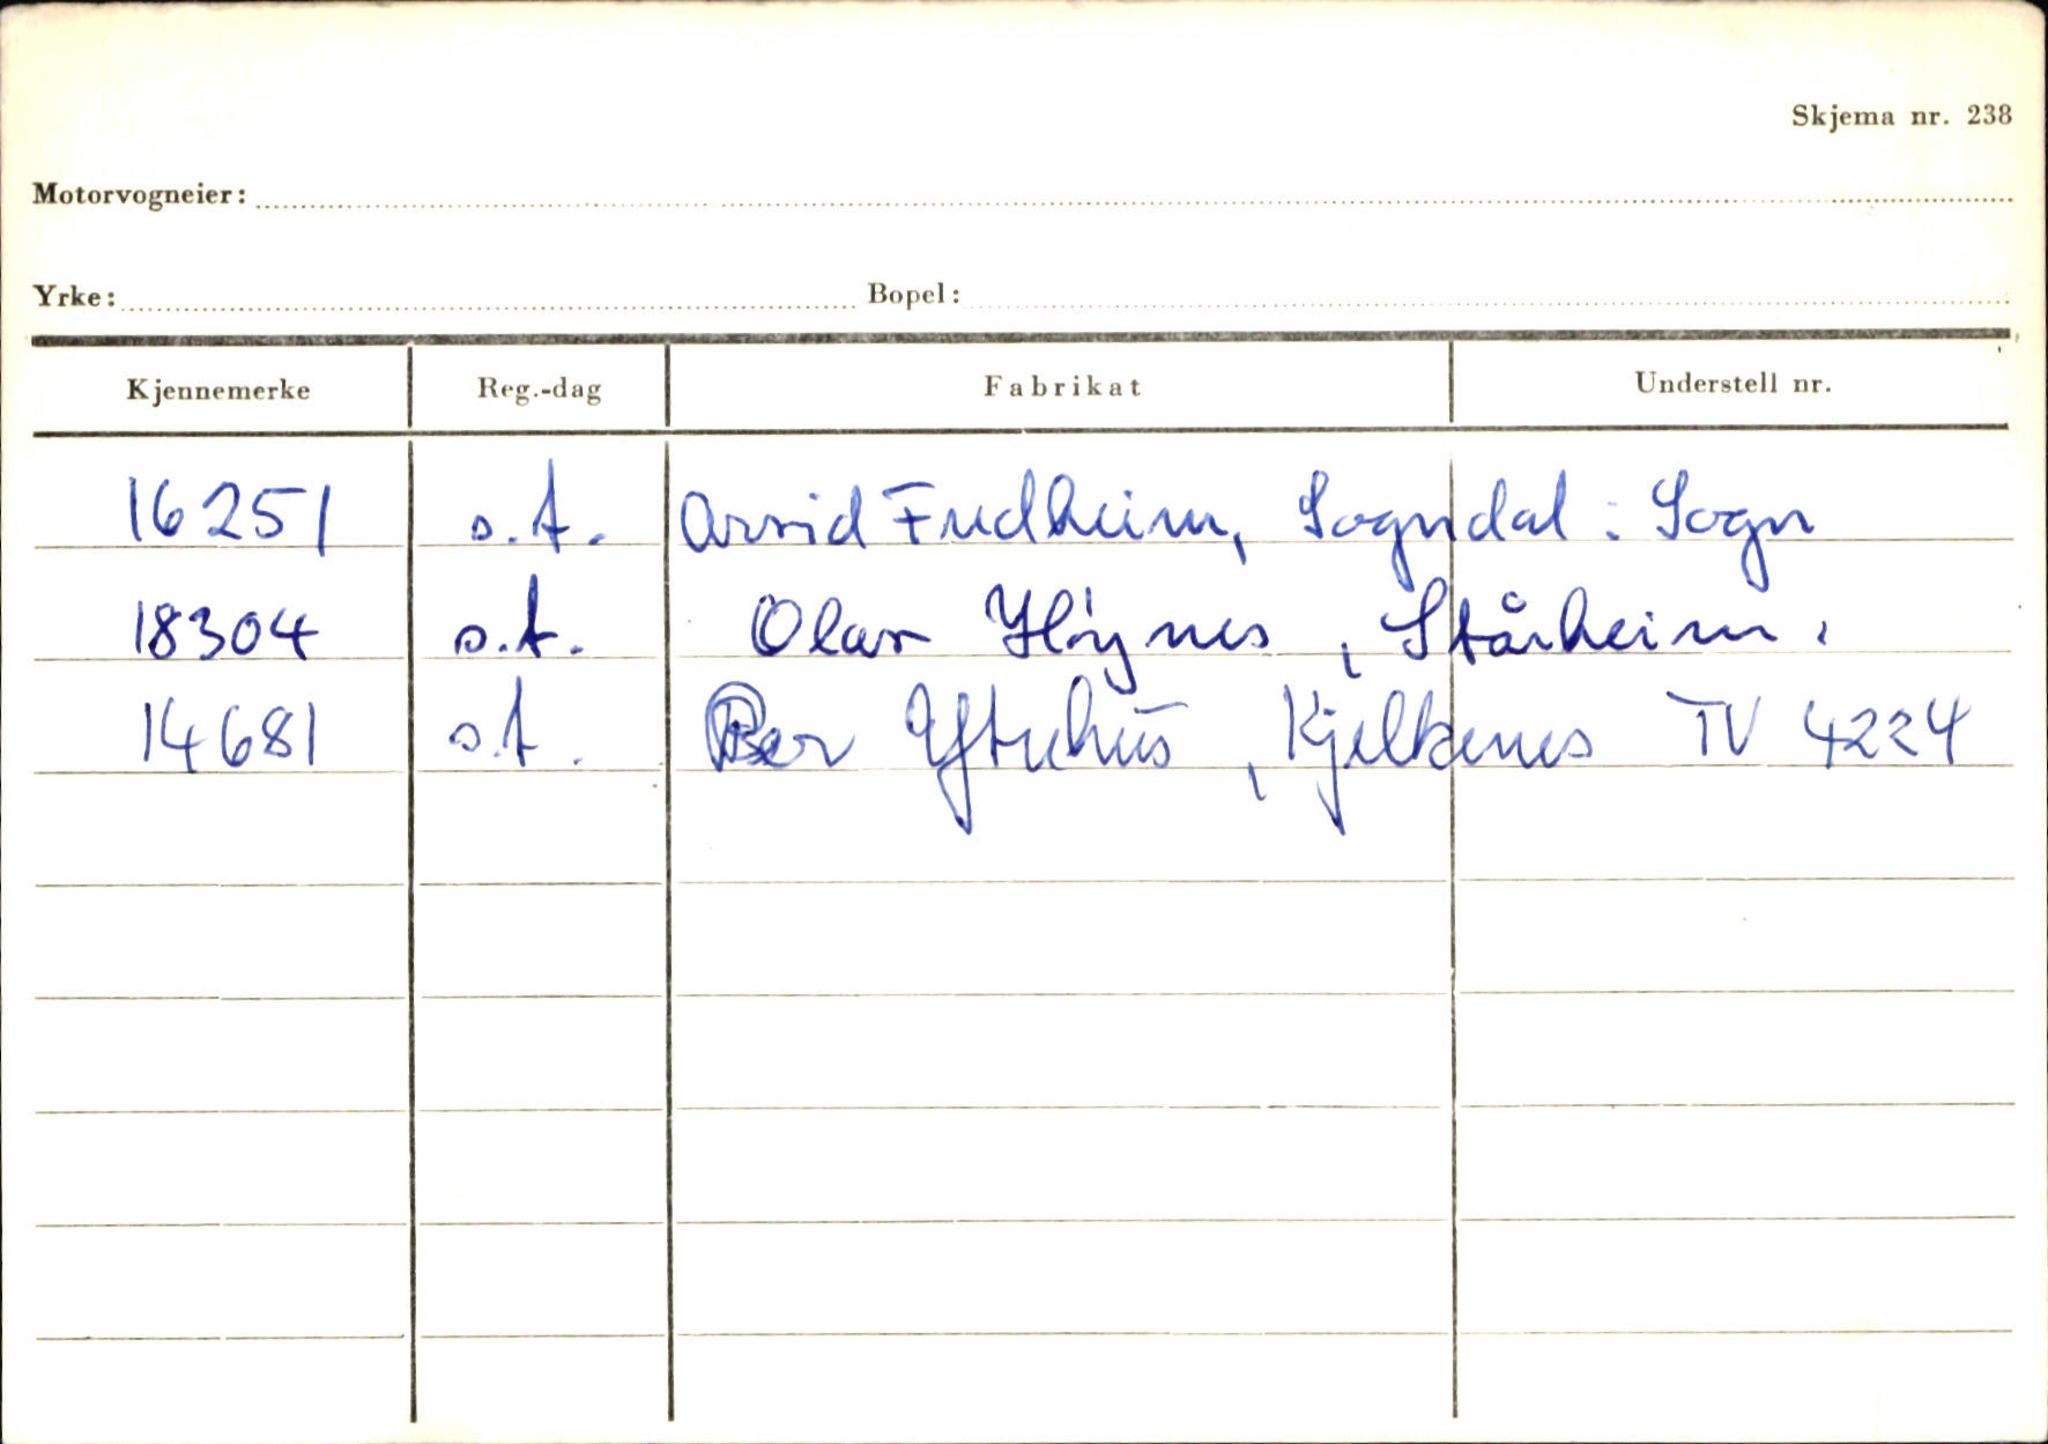 Skjema nr. 238
Motorvogneier:
Yrke: Bopel:
Kjennemerke Reg.-dag Fabrikat Understell nr.
16251 s.t. Arvid Fredheim, Sogndal i Sogn
18304 s.t. Olav Høynes, Stårheim.
14681 s.t. Per Kjelkenes TV 4224